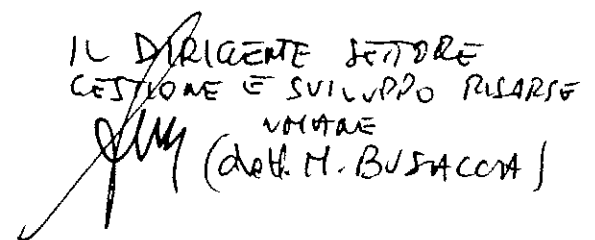 IL DIRIGENTE SETTORE
GESTIONE E SVILUPPO RISORSE
UMANE
(dott. M. BUSACCA)